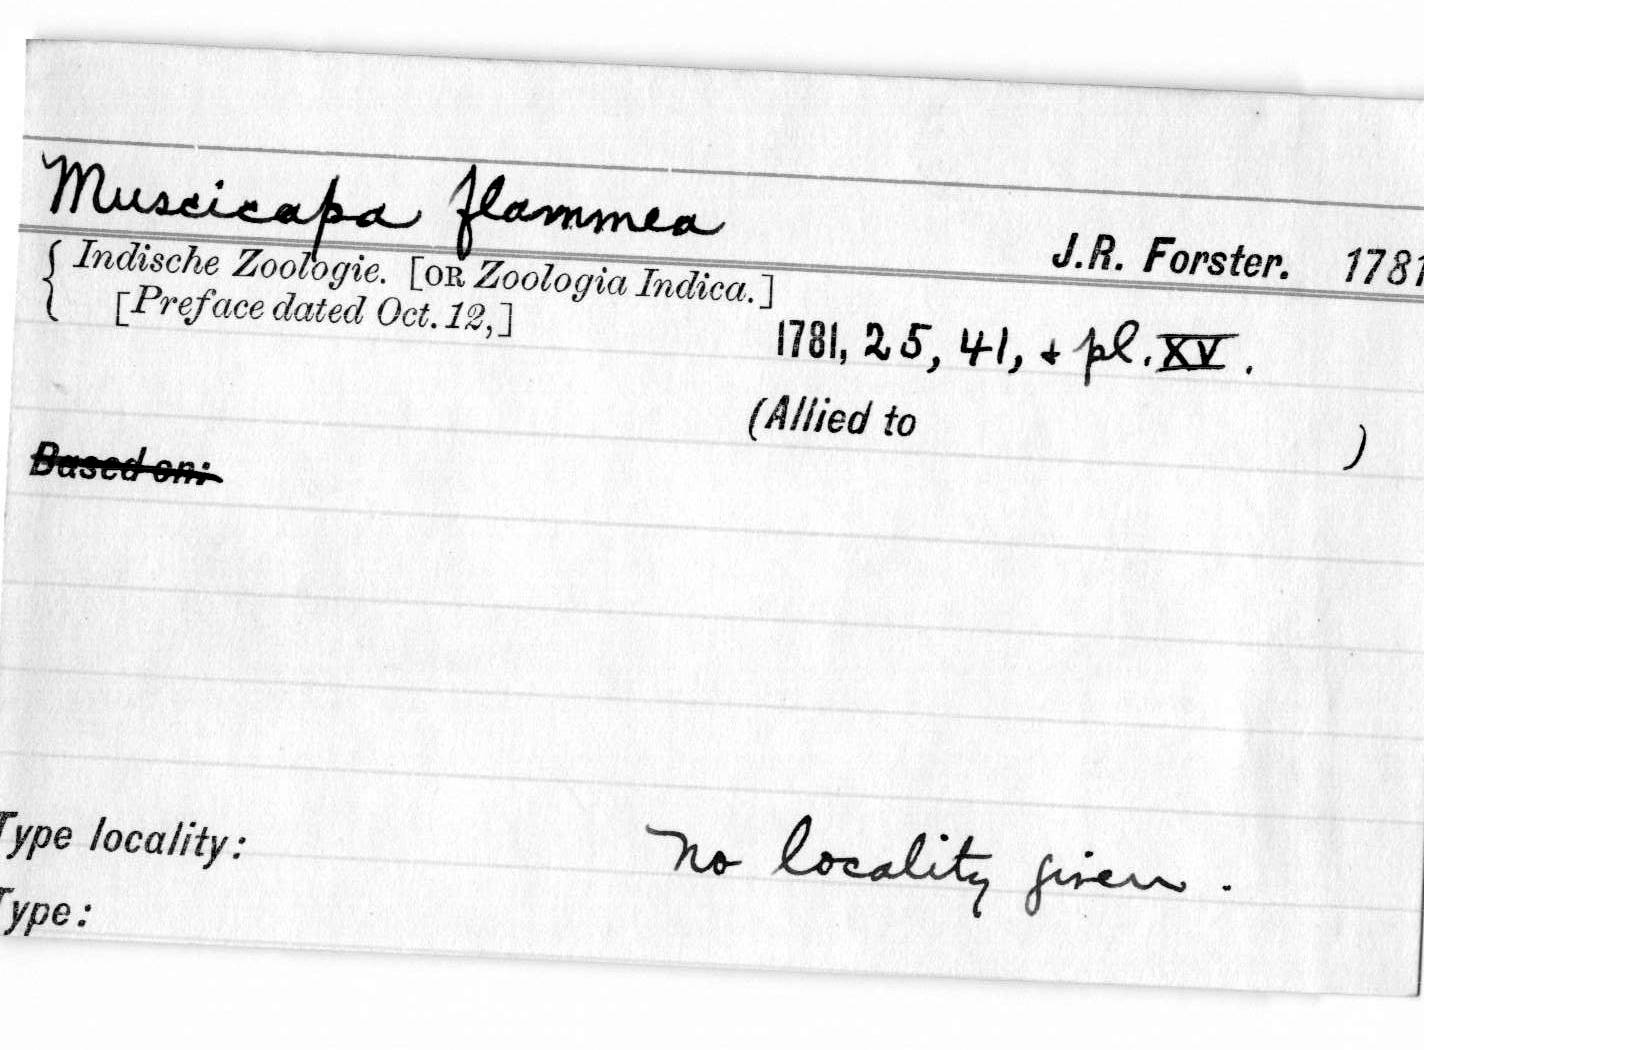 Muscicapa flammea
J.R. Forster. 1781
{ Indische Zoologie. [OR Zoologia Indica.]
[Preface dated Oct. 12,]
1781, 25, 41, + pl. XV.
(Allied to )
Based on:
Type locality: No locality given.
Type: